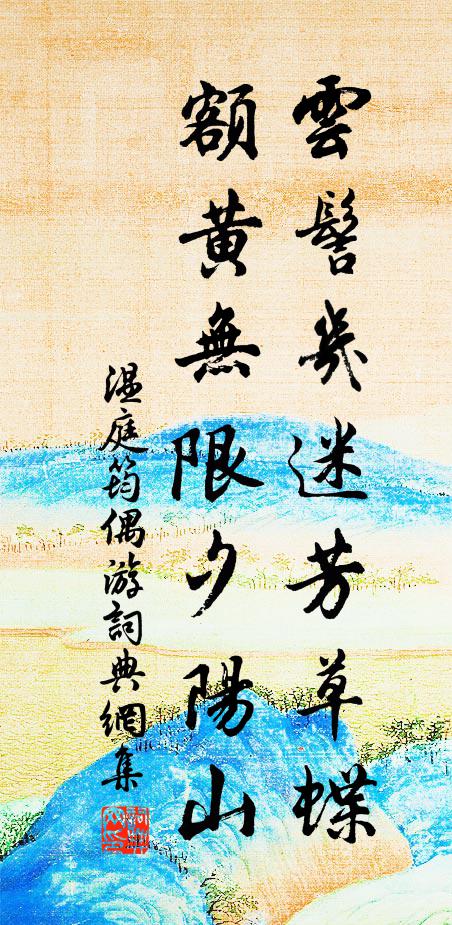 雲髻幾迷芳草蝶
額黃無限夕陽山
溫庭筠偶游詞典網集